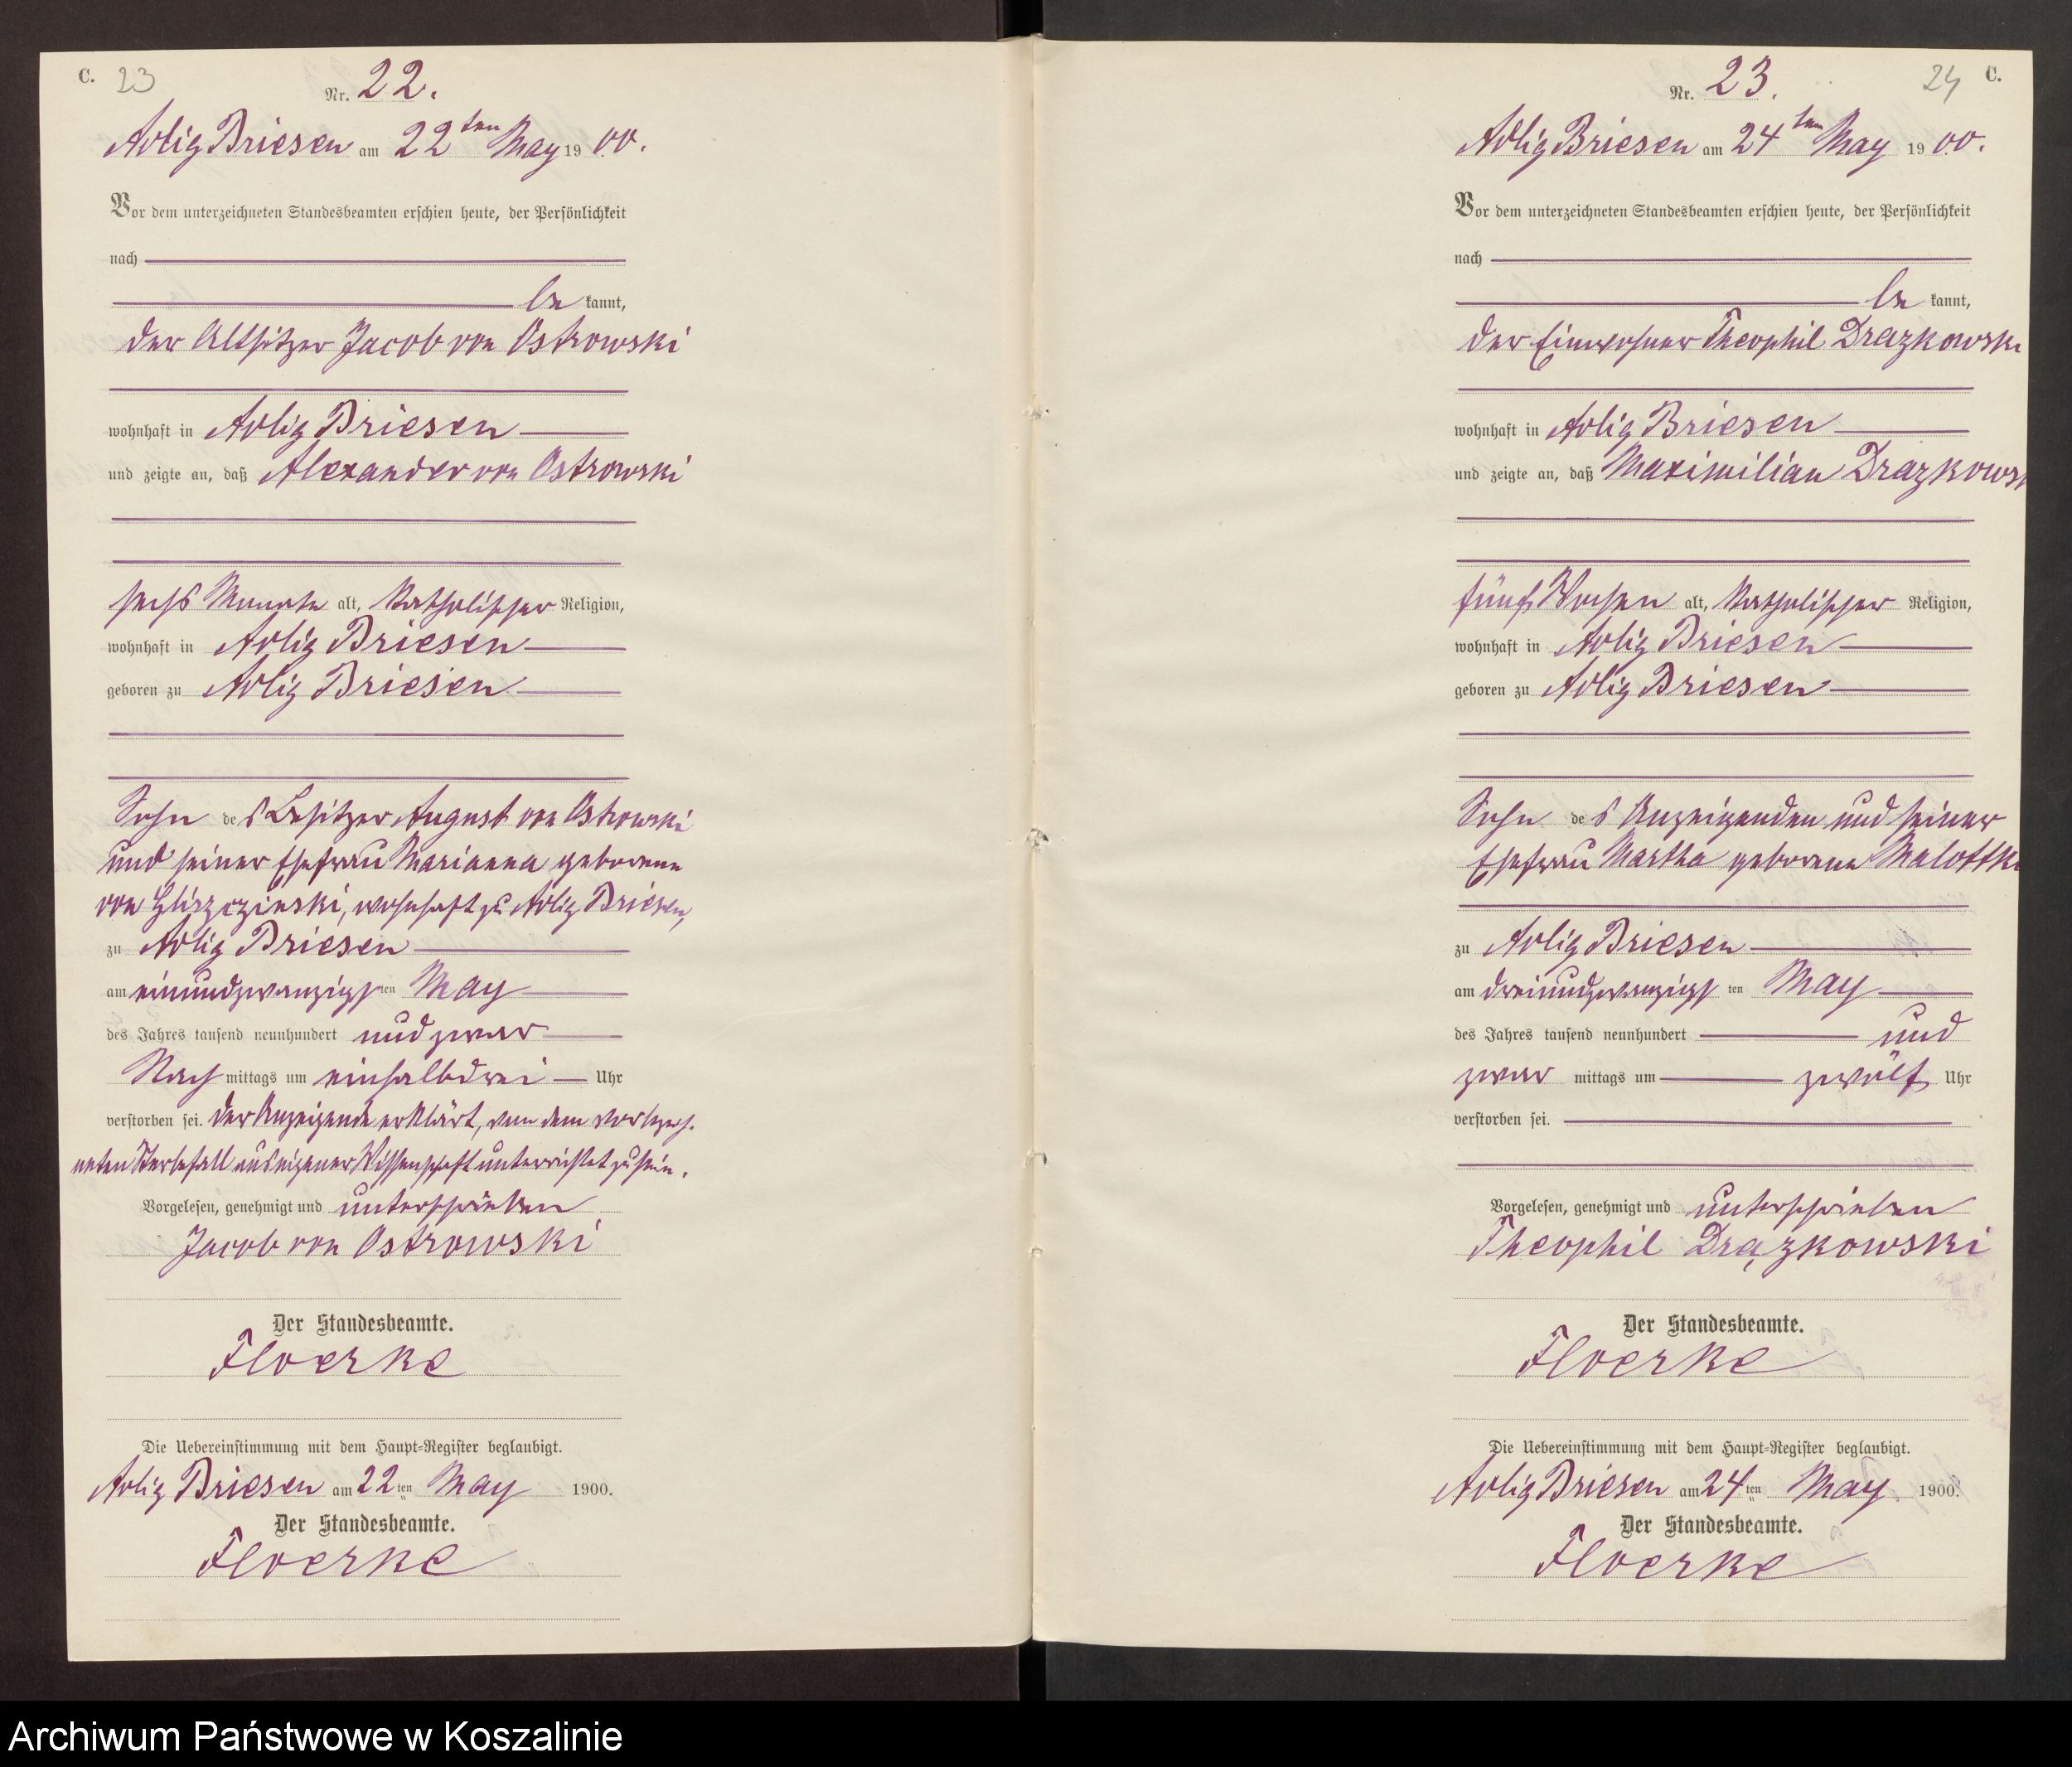 C. 23
Nr. 22.
Adlig Briesen am 22ten May 1900.
Vor dem unterzeichneten Standesbeamten erschien heute, der Persönlichkeit
nach
be kannt,
der Altsitzer Jacob von Ostrowski
wohnhaft in Adlig Briesen
und zeigte an, daß Alexander von Ostrowski
sechs Monate alt, katholischer Religion,
wohnhaft in Adlig Briesen
geboren zu Adlig Briesen
Sohn des Besitzer August von Ostrowski
und seiner Ehefrau Marianna geborene
von Gliszczinski, wohnhaft zu Adlig Briesen,
zu Adlig Briesen
am einundzwanzigsten May
des Jahres tausend neunhundert und zwar
Nach mittags um einhalbdrei Uhr
verstorben sei. Der Anzeigende erklärt, von dem vorbezeich-
neten Sterbefall aus eigener Wissenschaft unterrichtet zu sein.
Vorgelesen, genehmigt und unterschrieben
Jacob von Ostrowski
Der Standesbeamte.
Floerke
Die Uebereinstimmung mit dem Haupt-Register beglaubigt.
Adlig Briesen am 22ten May 1900.
Der Standesbeamte.
Floerke
24 C.
Nr. 23.
Adlig Briesen am 24ten May 1900.
Vor dem unterzeichneten Standesbeamten erschien heute, der Persönlichkeit
nach
be kannt,
der Einwohner Theophil Drazkowski
wohnhaft in Adlig Briesen
und zeigte an, daß Maximilian Drazkowsk
fünf Wochen alt, katholischer Religion,
wohnhaft in Adlig Briesen
geboren zu Adlig Briesen
Sohn des Anzeigenden und seiner
Ehefrau Martha geborene Malottki
zu Adlig Briesen
am dreiundzwanzigsten May
des Jahres tausend neunhundert und
zwar mittags um zwölf Uhr
verstorben sei.
Vorgelesen, genehmigt und unterschrieben
Theophil Drązkowski
Der Standesbeamte.
Floerke
Die Uebereinstimmung mit dem Haupt-Register beglaubigt.
Adlig Briesen am 24ten May 1900.
Der Standesbeamte.
Floerke
Archiwum Państwowe w Koszalinie